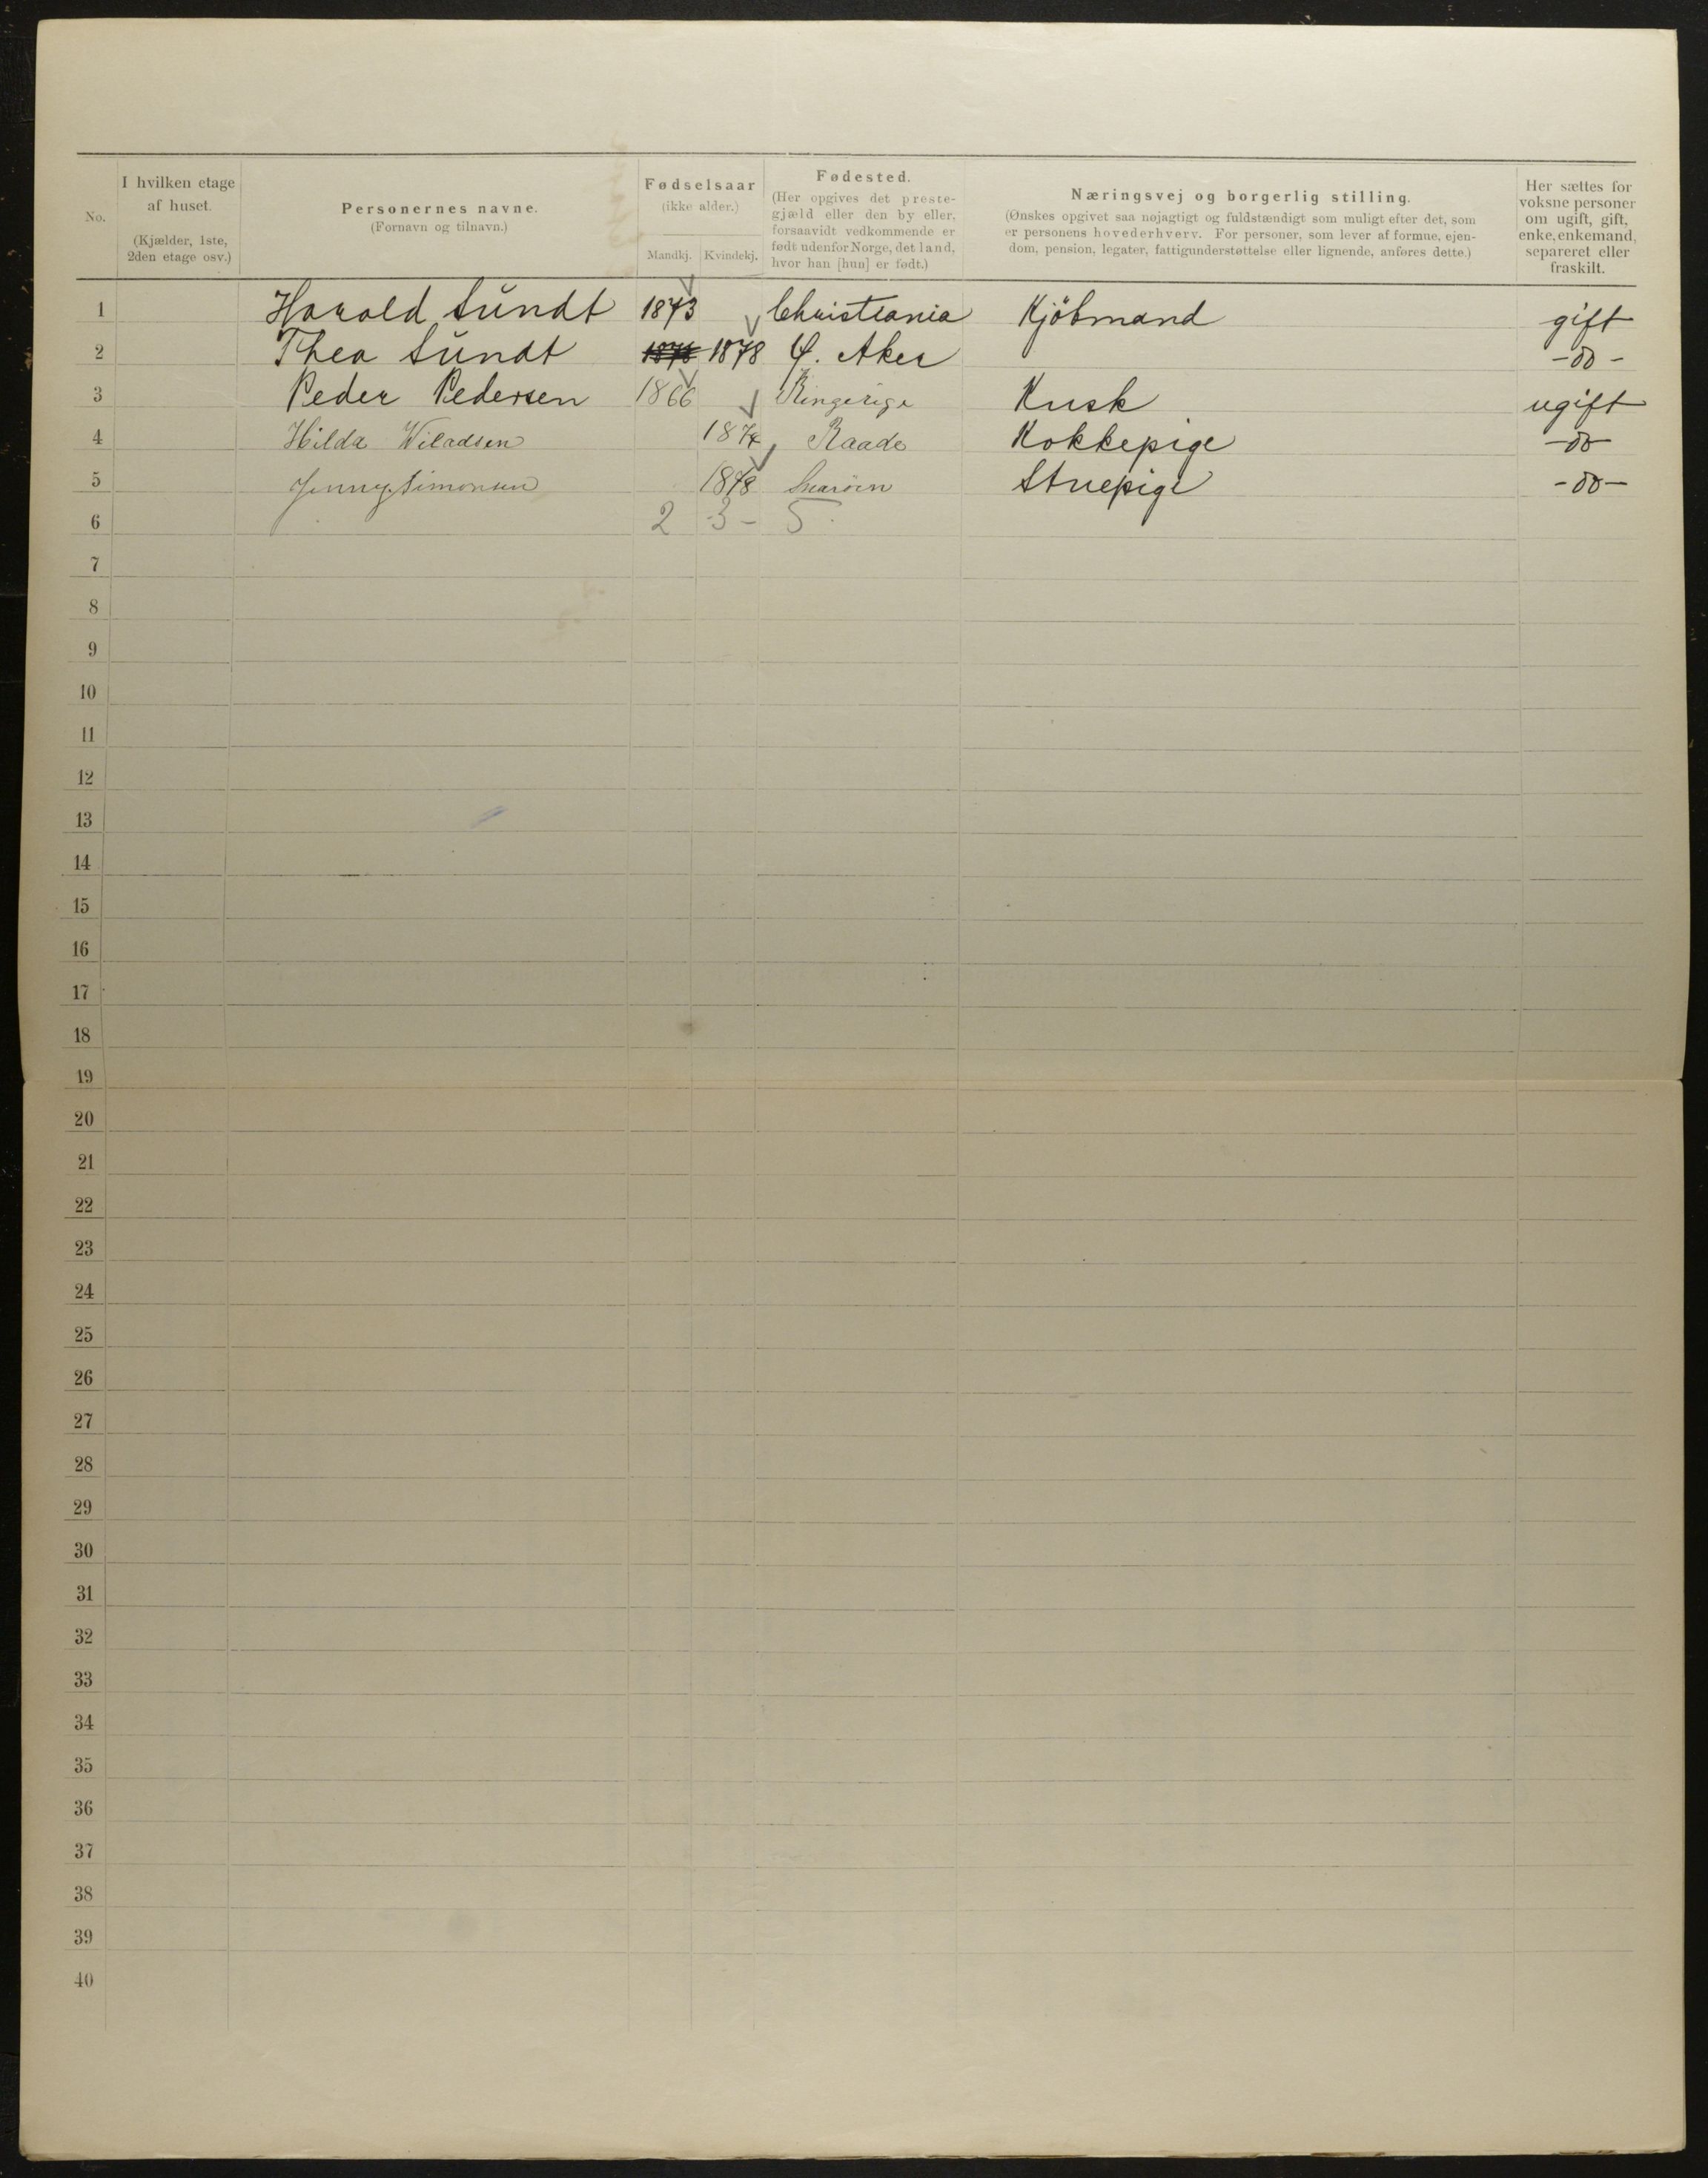 No.
I hvilken etage af huset. (Kjælder, 1ste, 2den etage osv.)
Personernes navne. (Fornavn og tilnavn.)
Fødselsaar (ikke alder.) Mandkj. Kvindekj.
Fødested. (Her opgives det prestegjæld eller den by eller, forsaavidt vedkommende er født udenfor Norge, det land, hvor han [hun] er født.)
Næringsvej og borgerlig stilling. (Ønskes opgivet saa nøjagtigt og fuldstændigt som muligt efter det, som er personens hovederhverv. For personer, som lever af formue, ejendom, pension, legater, fattigunderstøttelse eller lignende, anføres dette.)
Her sættes for voksne personer om ugift, gift, enke, enkemand, separeret eller fraskilt.
1 Harald Sundt 1873 Christiania Kjöbmand gift
2 Thea Sundt 1878 V. Aker -do-
3 Peder Pedersen 1866 Ringerige Kusk ugift
4 Hilda Wiladsen 1874 Raade Kokkepige -do-
5 Jenny Simonsen 1878 Snarøen Stuepige -do-
6 2 -3- 5
7
8
9
10
11
12
13
14
15
16
17
18
19
20
21
22
23
24
25
26
27
28
29
30
31
32
33
34
35
36
37
38
39
40